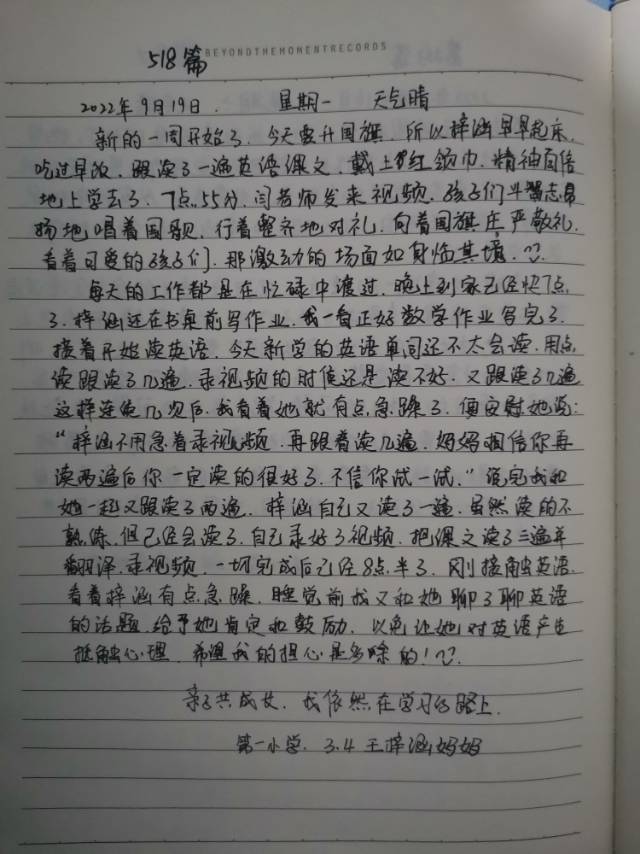 BEYONDTHEMOMENTRECORDS
518篇
2022年9月19日. 星期一 天气晴
新的一周开始了. 今天要升国旗. 所以梓涵早早起床.
吃过早饭. 跟读了一遍英语课文. 戴上红领巾. 精神百倍
地上学去了. 7点55分. 闫老师发来视频. 孩子们斗志昂
扬地唱着国歌. 行着整齐地对礼. 向着国旗庄严敬礼.
看着可爱的孩子们. 那激动的场面如身临其境.
每天的工作都是在忙碌中渡过. 晚上到家已经快7点
了. 梓涵还在书桌前写作业. 我一看正好数学作业写完了.
接着开始读英语. 今天新学的英语单词还不太会读. 用点
读跟读了几遍. 录视频的时候还是读不好. 又跟读了几遍
这样连续几次后. 我看着她就有点急躁了. 便安慰她说:
“梓涵不用急着录视频. 再跟着读几遍. 妈妈相信你再
读两遍后你一定读的很好了. 不信你试一试.”说完我和
她一起又跟读了两遍. 梓涵自己又读了一遍. 虽然读的不
熟练. 但已经会读了. 自己录好了视频. 把课文读了三遍并
翻泽. 录视频. 一切完成后已经8点半了. 刚接触英语.
看着梓涵有点急躁. 睡觉前我又和她聊了聊英语
的话题. 给予她肯定和鼓励. 以免让她对英语产生
抵触心理. 希望我的担心是多余的!
亲子共成长. 我依然在学习的路上.
第一小学. 3.4 王梓涵妈妈